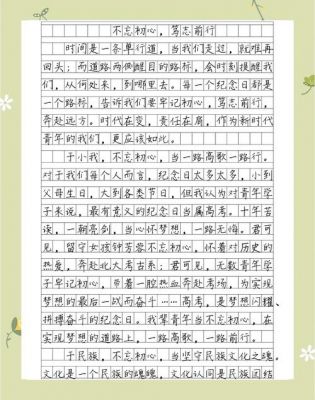 不忘初心，笃志前行
时间是一条单行道，当我们走过，就难再
回头；而道路两侧醒目的路标，会时刻提醒我
们，从何处来，到哪里去。每一个纪念日都是
一个路标，告诉我们要牢记初心，笃志前行，
奔赴远方。时代在变，责任在肩，作为新时代
青年的我们，更应该如此。
于小我，不忘初心，当一路高歌一路行。
对于我们每个人而言，纪念日太多太多，小到
父母生日，大到各类节日，但我认为对青年学
子来说，最有意义的纪念日当属高考。十年苦
读，一朝亮剑，当心怀梦想，一路无悔。君可
见，留守女孩钟芳蓉不忘初心，怀着对历史的
热爱，奔赴北大考古系；君可见，无数青年学
子牢记初心，带着一腔热血奔赴考场，为实现
梦想的最后一战而奋斗……高考，是梦想闪耀、
拼搏奋斗的纪念日。我辈青年当不忘初心，在
实现梦想的道路上，一路高歌，一路前行。
于民族，不忘初心，当坚守民族文化之魂。
文化是一个民族的魂魄，文化认同是民族团结